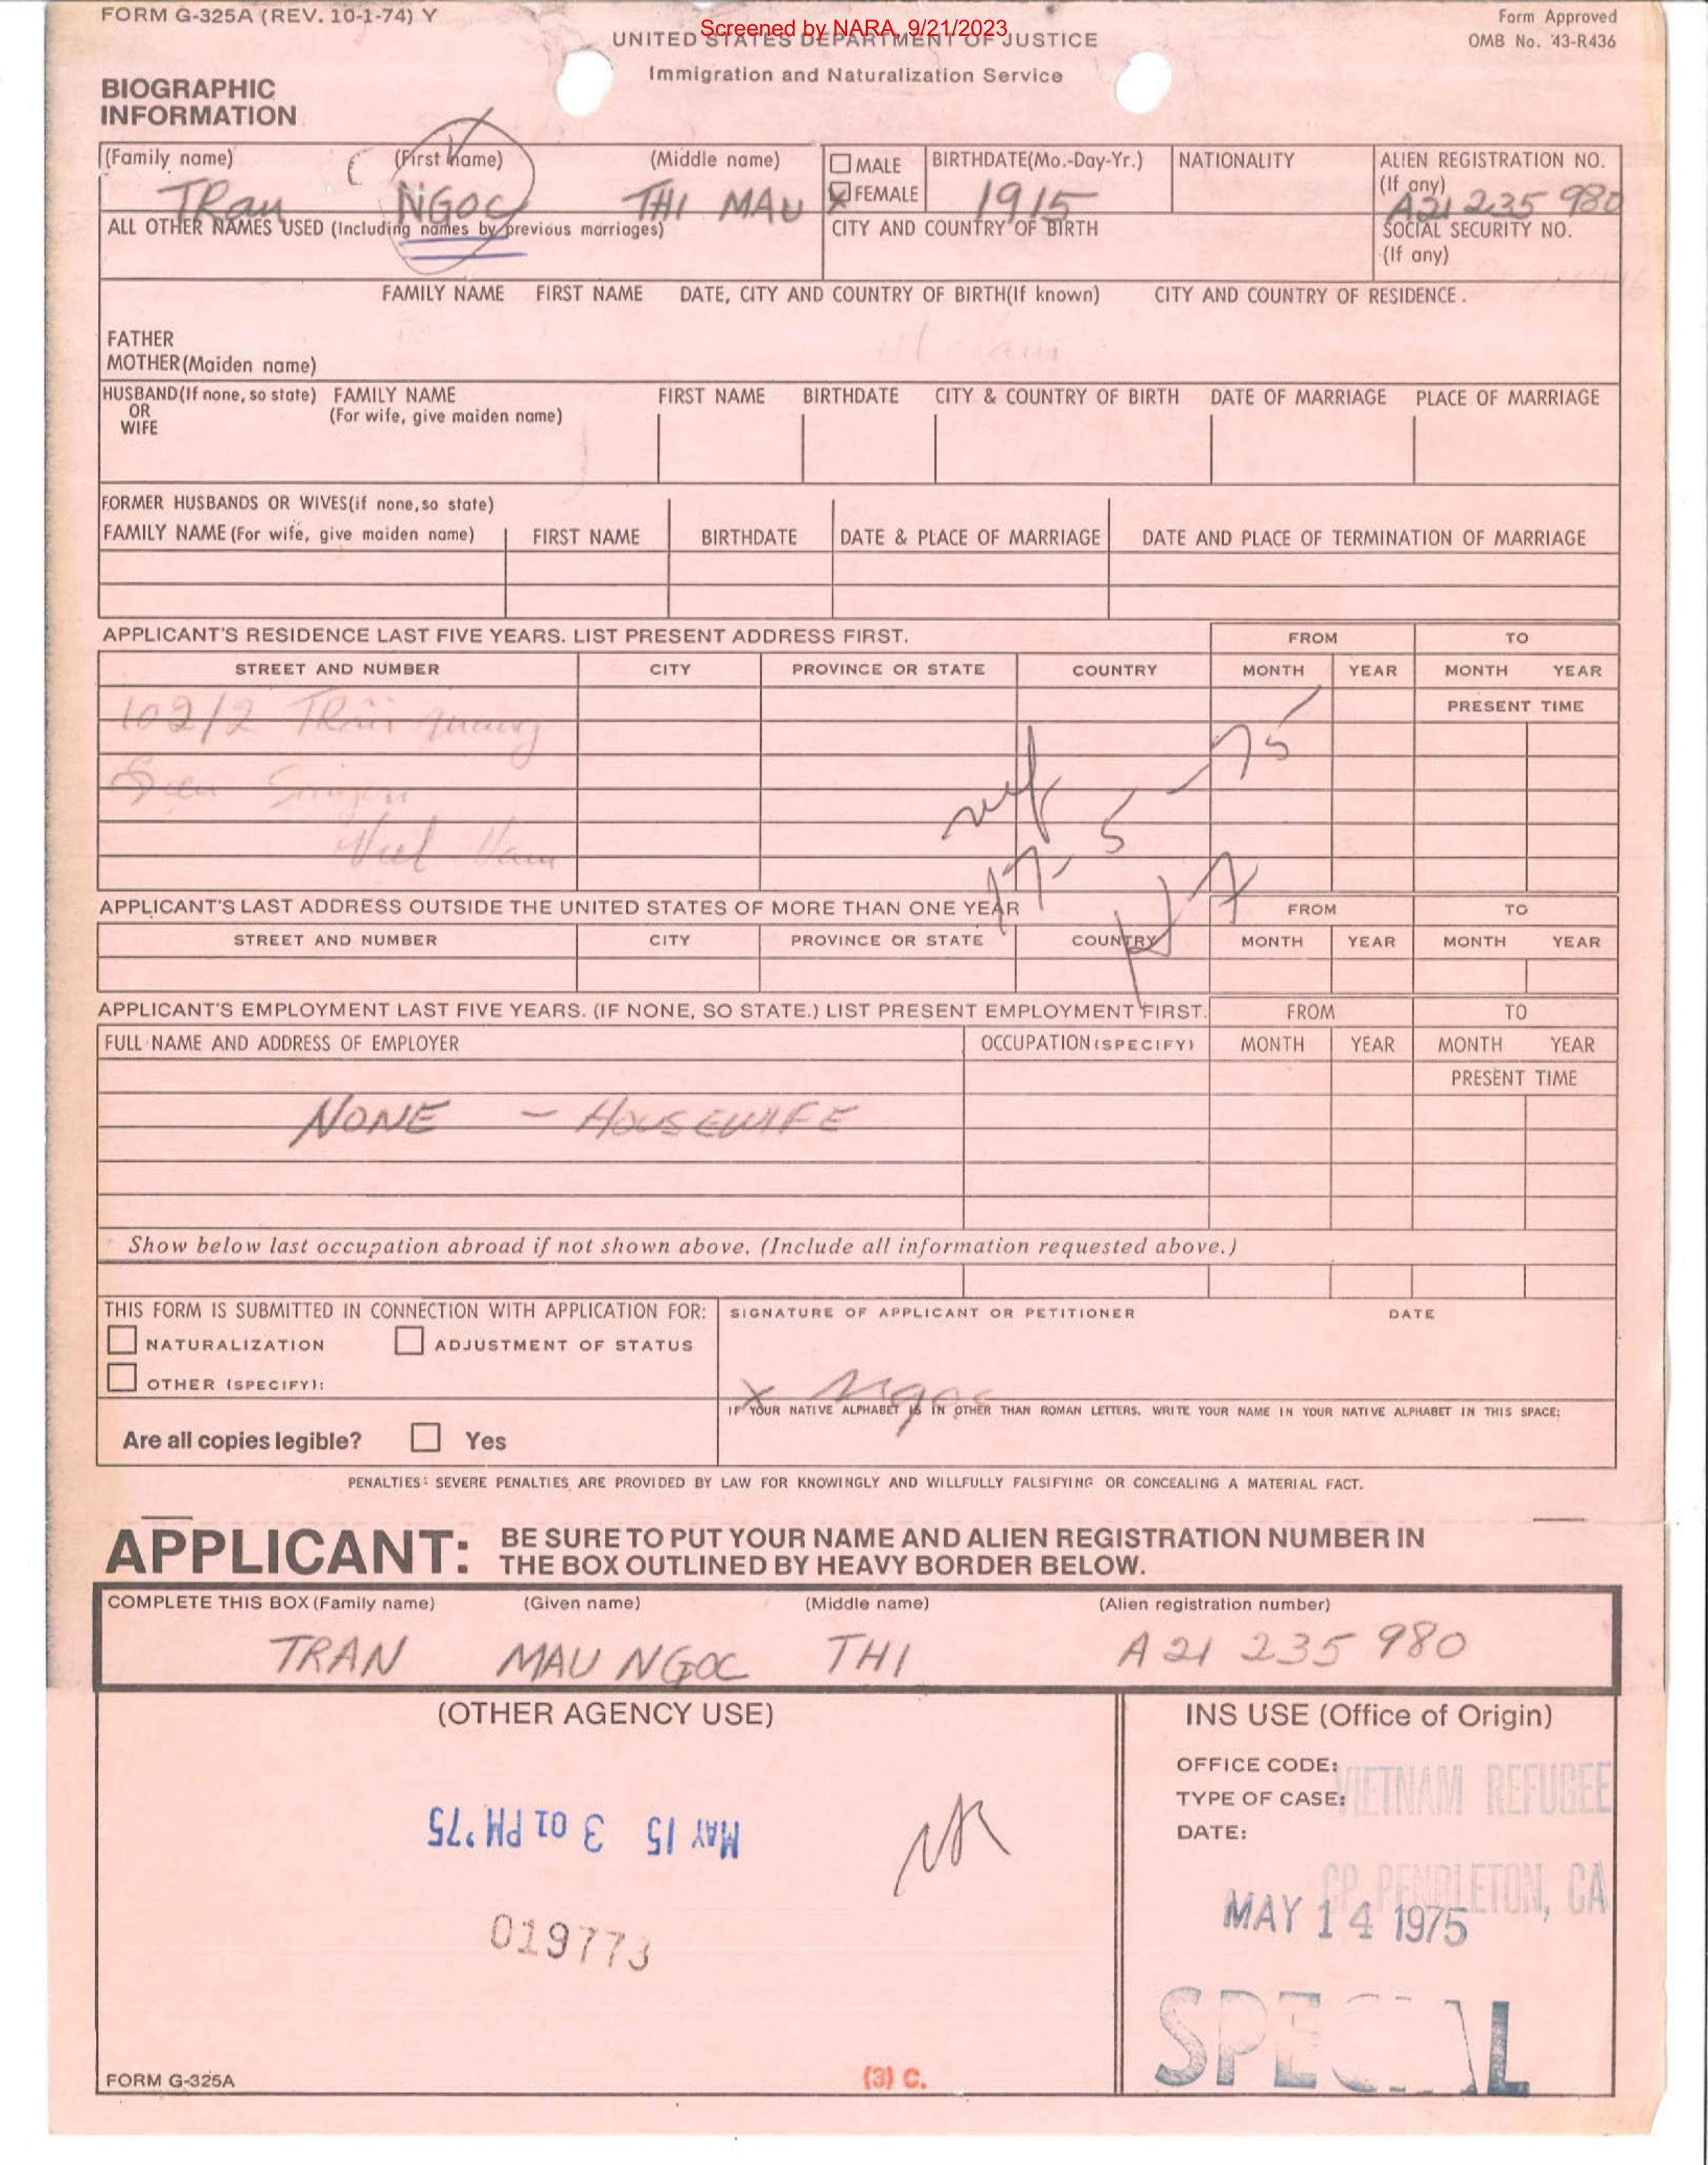 FORM G-325A (REV. 10-1-74) Y
Screened by NARA, 9/21/2023
Form Approved
OMB No. 43-R436
UNITED STATES DEPARTMENT OF JUSTICE
Immigration and Naturalization Service
BIOGRAPHIC
INFORMATION
(Family name) (First name) (Middle name) MALE BIRTHDATE(Mo.-Day-Yr.) NATIONALITY ALIEN REGISTRATION NO.
(If any)
TRan NGOC THI MAU X FEMALE 1915 A21 235 980
ALL OTHER NAMES USED (Including names by previous marriages) CITY AND COUNTRY OF BIRTH SOCIAL SECURITY NO.
(If any)
FAMILY NAME FIRST NAME DATE, CITY AND COUNTRY OF BIRTH(If known) CITY AND COUNTRY OF RESIDENCE.
FATHER
MOTHER(Maiden name)
HUSBAND(If none, so state) FAMILY NAME FIRST NAME BIRTHDATE CITY & COUNTRY OF BIRTH DATE OF MARRIAGE PLACE OF MARRIAGE
OR (For wife, give maiden name)
WIFE
FORMER HUSBANDS OR WIVES(if none, so state)
FAMILY NAME (For wife, give maiden name) FIRST NAME BIRTHDATE DATE & PLACE OF MARRIAGE DATE AND PLACE OF TERMINATION OF MARRIAGE
APPLICANT'S RESIDENCE LAST FIVE YEARS. LIST PRESENT ADDRESS FIRST. FROM TO
STREET AND NUMBER CITY PROVINCE OR STATE COUNTRY MONTH YEAR MONTH YEAR
PRESENT TIME
102/2
Viet Nam
17-5-75
APPLICANT'S LAST ADDRESS OUTSIDE THE UNITED STATES OF MORE THAN ONE YEAR FROM TO
STREET AND NUMBER CITY PROVINCE OR STATE COUNTRY MONTH YEAR MONTH YEAR
APPLICANT'S EMPLOYMENT LAST FIVE YEARS. (IF NONE, SO STATE.) LIST PRESENT EMPLOYMENT FIRST. FROM TO
FULL NAME AND ADDRESS OF EMPLOYER OCCUPATION (SPECIFY) MONTH YEAR MONTH YEAR
PRESENT TIME
NONE - HOUSEWIFE
Show below last occupation abroad if not shown above. (Include all information requested above.)
THIS FORM IS SUBMITTED IN CONNECTION WITH APPLICATION FOR: SIGNATURE OF APPLICANT OR PETITIONER DATE
NATURALIZATION ADJUSTMENT OF STATUS
OTHER (SPECIFY):
X Ngoc
IF YOUR NATIVE ALPHABET IS IN OTHER THAN ROMAN LETTERS, WRITE YOUR NAME IN YOUR NATIVE ALPHABET IN THIS SPACE:
Are all copies legible? Yes
PENALTIES: SEVERE PENALTIES ARE PROVIDED BY LAW FOR KNOWINGLY AND WILLFULLY FALSIFYING OR CONCEALING A MATERIAL FACT.
APPLICANT: BE SURE TO PUT YOUR NAME AND ALIEN REGISTRATION NUMBER IN
THE BOX OUTLINED BY HEAVY BORDER BELOW.
COMPLETE THIS BOX (Family name) (Given name) (Middle name) (Alien registration number)
TRAN MAU NGOC THI A21 235 980
(OTHER AGENCY USE) INS USE (Office of Origin)
OFFICE CODE:
TYPE OF CASE: VIETNAM REFUGEE
DATE:
MAY 15 3 01 PM '75
CP PENDLETON, CA
MAY 14 1975
019773
SPECIAL
FORM G-325A (3) C.